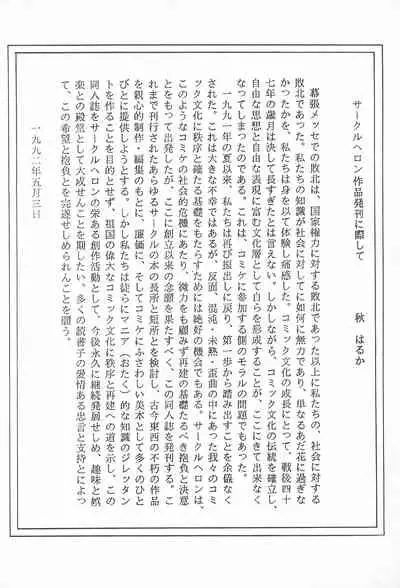 サークルヘロン作品発刊に際して
秋　はるか
　幕張メッセでの敗北は、国家権力に対する敗北であった以上に私たちの、社会に対する
敗北であった。私たちの知識が社会に対してに如何に無力であり、単なるあだ花に過ぎな
かったかを、私たちは身を以て体験し痛感した。コミック文化の成長にとって、戦後四十
七年の歳月は決して長すぎたとは言えない。しかしながら、コミック文化の伝統を確立し、
自由な思想と自由な表現に富む文化層として自らを形成することが、ここにきて出来なく
なってしまったのである。これは、コミケに参加する側のモラルの問題でもあった。
　一九九一年の夏以来、私たちは再び振出しに戻り、第一歩から踏み出すことを余儀なく
された。これは大きな不幸ではあるが、反面、混沌・未熟・歪曲の中にあった我々のコミ
ック文化に秩序と確たる基礎をもたらすためには絶好の機会でもある。サークルヘロンは、
このようなコミケの社会的危機にあたり、微力をも顧みず再建の基礎たるべき抱負と決意
とをもって出発したが、ここに創立以来の念願を果たすべく、この同人誌を発刊する。こ
れまで刊行されたあらゆるサークルの本の長所と短所とを検討し、古今東西の不朽の作品
を良心的制作・編集のもとに、廉価に、そしてコミケにふさわしい美本として多くのひと
びとに提供しようとする。しかし私たちは徒らにマニア（おたく）的な知識のジレッタン
トを作ることを目的とせず、祖国の偉大なコミック文化に秩序と再建への道を示し、この
同人誌をサークルヘロンの栄ある創作活動として、今後永久に継続発展せしめ、趣味と娯
楽との殿堂として大成せんことを期したい。多くの読書子の愛情ある忠言と支持とによっ
て、この希望と抱負とを完遂せしめられんことを願う。
一九九二年五月三日